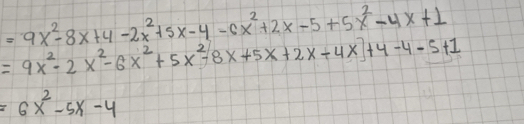 = 9x² - 8x + 4 - 2x² + 5x - 4 - 6x² + 2x - 5 + 5x² - 4x + 1
= 9x² - 2x² - 6x² + 5x² - 8x + 5x + 2x - 4x] + 4 - 4 - 5 + 1
= 6x² - 5x - 4